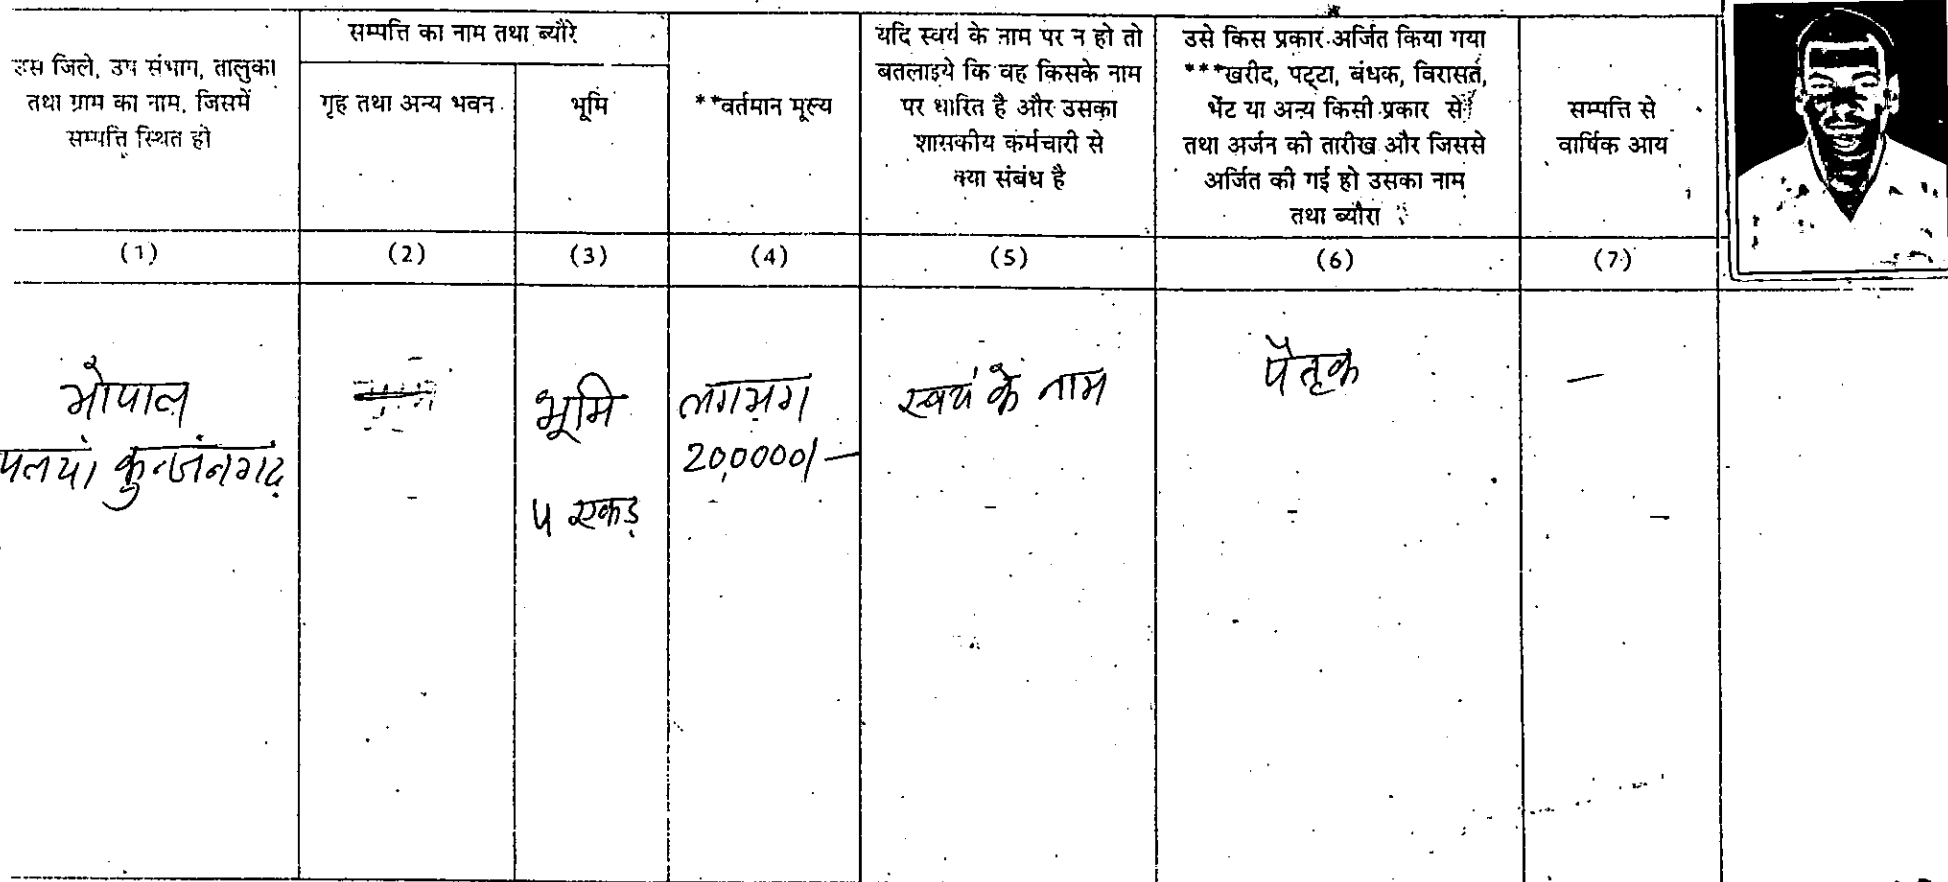 सम्पत्ति का नाम तथा ब्यौरे
उस जिले, उप संभाग, तालुका
तथा ग्राम का नाम, जिसमें
सम्पत्ति स्थित हो
गृह तथा अन्य भवन
भूमि
**वर्तमान मूल्य
यदि स्वयं के नाम पर न हो तो
बतलाइये कि वह किसके नाम
पर धारित है और उसका
शासकीय कर्मचारी से
क्या संबंध है
उसे किस प्रकार अर्जित किया गया
***खरीद, पट्टा, बंधक, विरासत,
भेंट या अन्य किसी प्रकार से
तथा अर्जन की तारीख और जिससे
अर्जित की गई हो उसका नाम
तथा ब्यौरा
सम्पत्ति से
वार्षिक आय
(1) (2) (3) (4) (5) (6) (7)
भोपाल
भूमि
एकड़
लगभग
200000/-
स्वयं के नाम
पैतृक
—